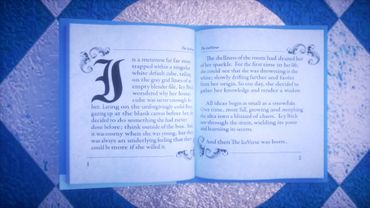 The IceVerse
In a meteness far far away,
trapped within a singular
white default cube, sailing
on the gray grid lines of an
empty blender file, Icy Brick
wondered why her home
cube was never enough for
her. Laying on the unforgivingly solid floor,
gazing up at the blank canvas before her, she
decided to do something she had never
done before; think outside of the box. But
it was roomy when she was young, but there
was always an underlying feeling that there
could be more if she willed it.
The IceVerse
The dullness of the room had drained her
of her sparkle. For the first time in her life,
she could see that she was drowning in the
white; slowly drifting farther and farther
from her origin. So one day, she decided to
gather her knowledge and render a wisdom.
All ideas begin as small as a snowflake.
Over time, more fall, growing and morphing
the idea into a blizzard of chaos. Icy Brick
saw through the storm, wielding its power
and learning its secrets.
And then The IceVerse was born..